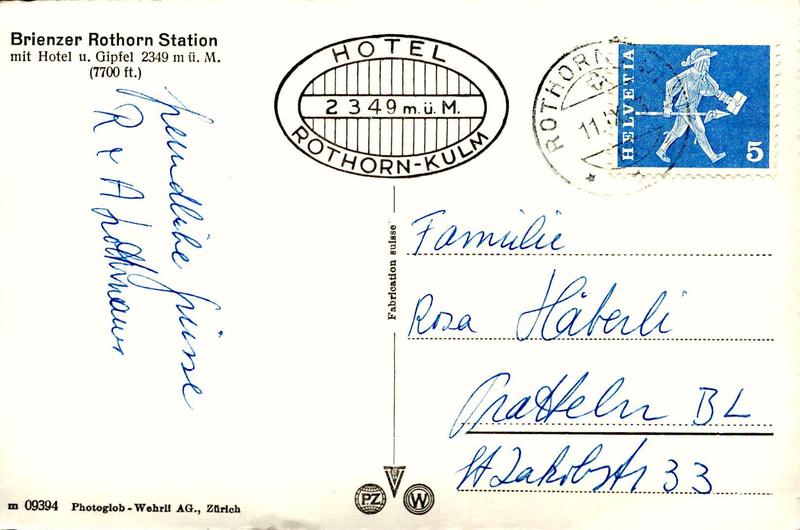 Brienzer Rothorn Station
mit Hotel u. Gipfel 2349 m ü. M.
(7700 ft.)
HOTEL
2349 m.ü.M.
ROTHORN-KULM
ROTHORN
11.
HELVETIA
5
freundliche Grüsse
R + A
Fabrication suisse
Familie
Rosa Häberli
Pratteln BL
St Jakobstr 33
PZ
W
m 09394 Photoglob-Wehrli AG., Zürich